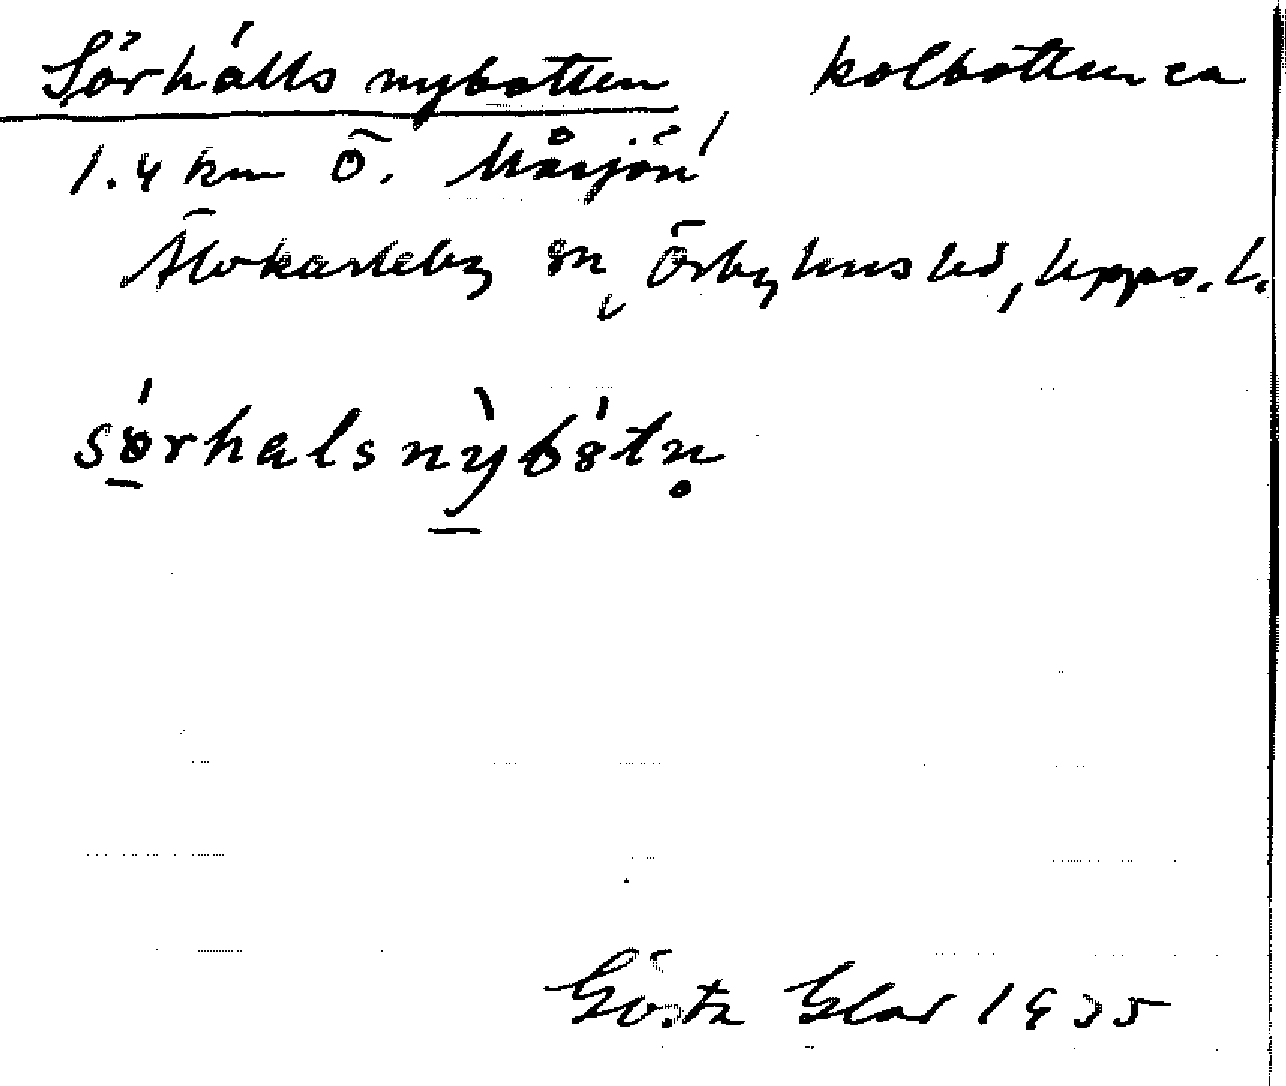 Sörhálls nybotten, kolbotten ca
1.4 km Ö. Måsjön
Älvkarleby sn, Örbyhus hd, Upps. l.
sörhalsnỳbótn̥
Gösta 1935